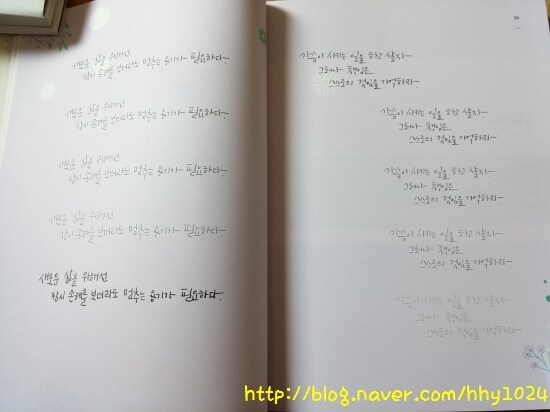 새로운 삶을 위해선
잠시 손해를 보더라도 멈추는 용기가 필요하다.
새로운 삶을 위해선
잠시 손해를 보더라도 멈추는 용기가 필요하다.
새로운 삶을 위해선
잠시 손해를 보더라도 멈추는 용기가 필요하다.
새로운 삶을 위해선
잠시 손해를 보더라도 멈추는 용기가 필요하다.
새로운 삶을 위해선
잠시 손해를 보더라도 멈추는 용기가 필요하다.
가슴이 시키는 일을 하고 살자
그러나 책임은
스스로의 것임을 기억하라
가슴이 시키는 일을 하고 살자
그러나 책임은
스스로의 것임을 기억하라
가슴이 시키는 일을 하고 살자
그러나 책임은
스스로의 것임을 기억하라
가슴이 시키는 일을 하고 살자
그러나 책임은
스스로의 것임을 기억하라
가슴이 시키는 일을 하고 살자
그러나 책임은
스스로의 것임을 기억하라
http://blog.naver.com/hhy1024